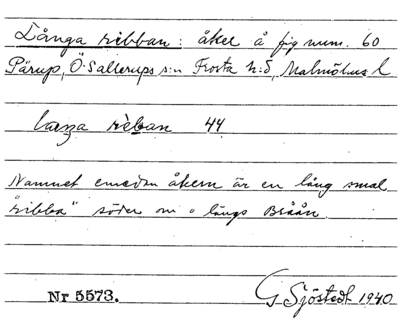 Långa ribban: åker å fig num. 60
Pärup, Ö. Sallerups s:n Frosta h:d, Malmöhus l
långa ribban 44
Namnet emedan åkern är en lång smal
"ribba" söder om o längs Bråån.
Nr 5573. G Sjöstedt 1940